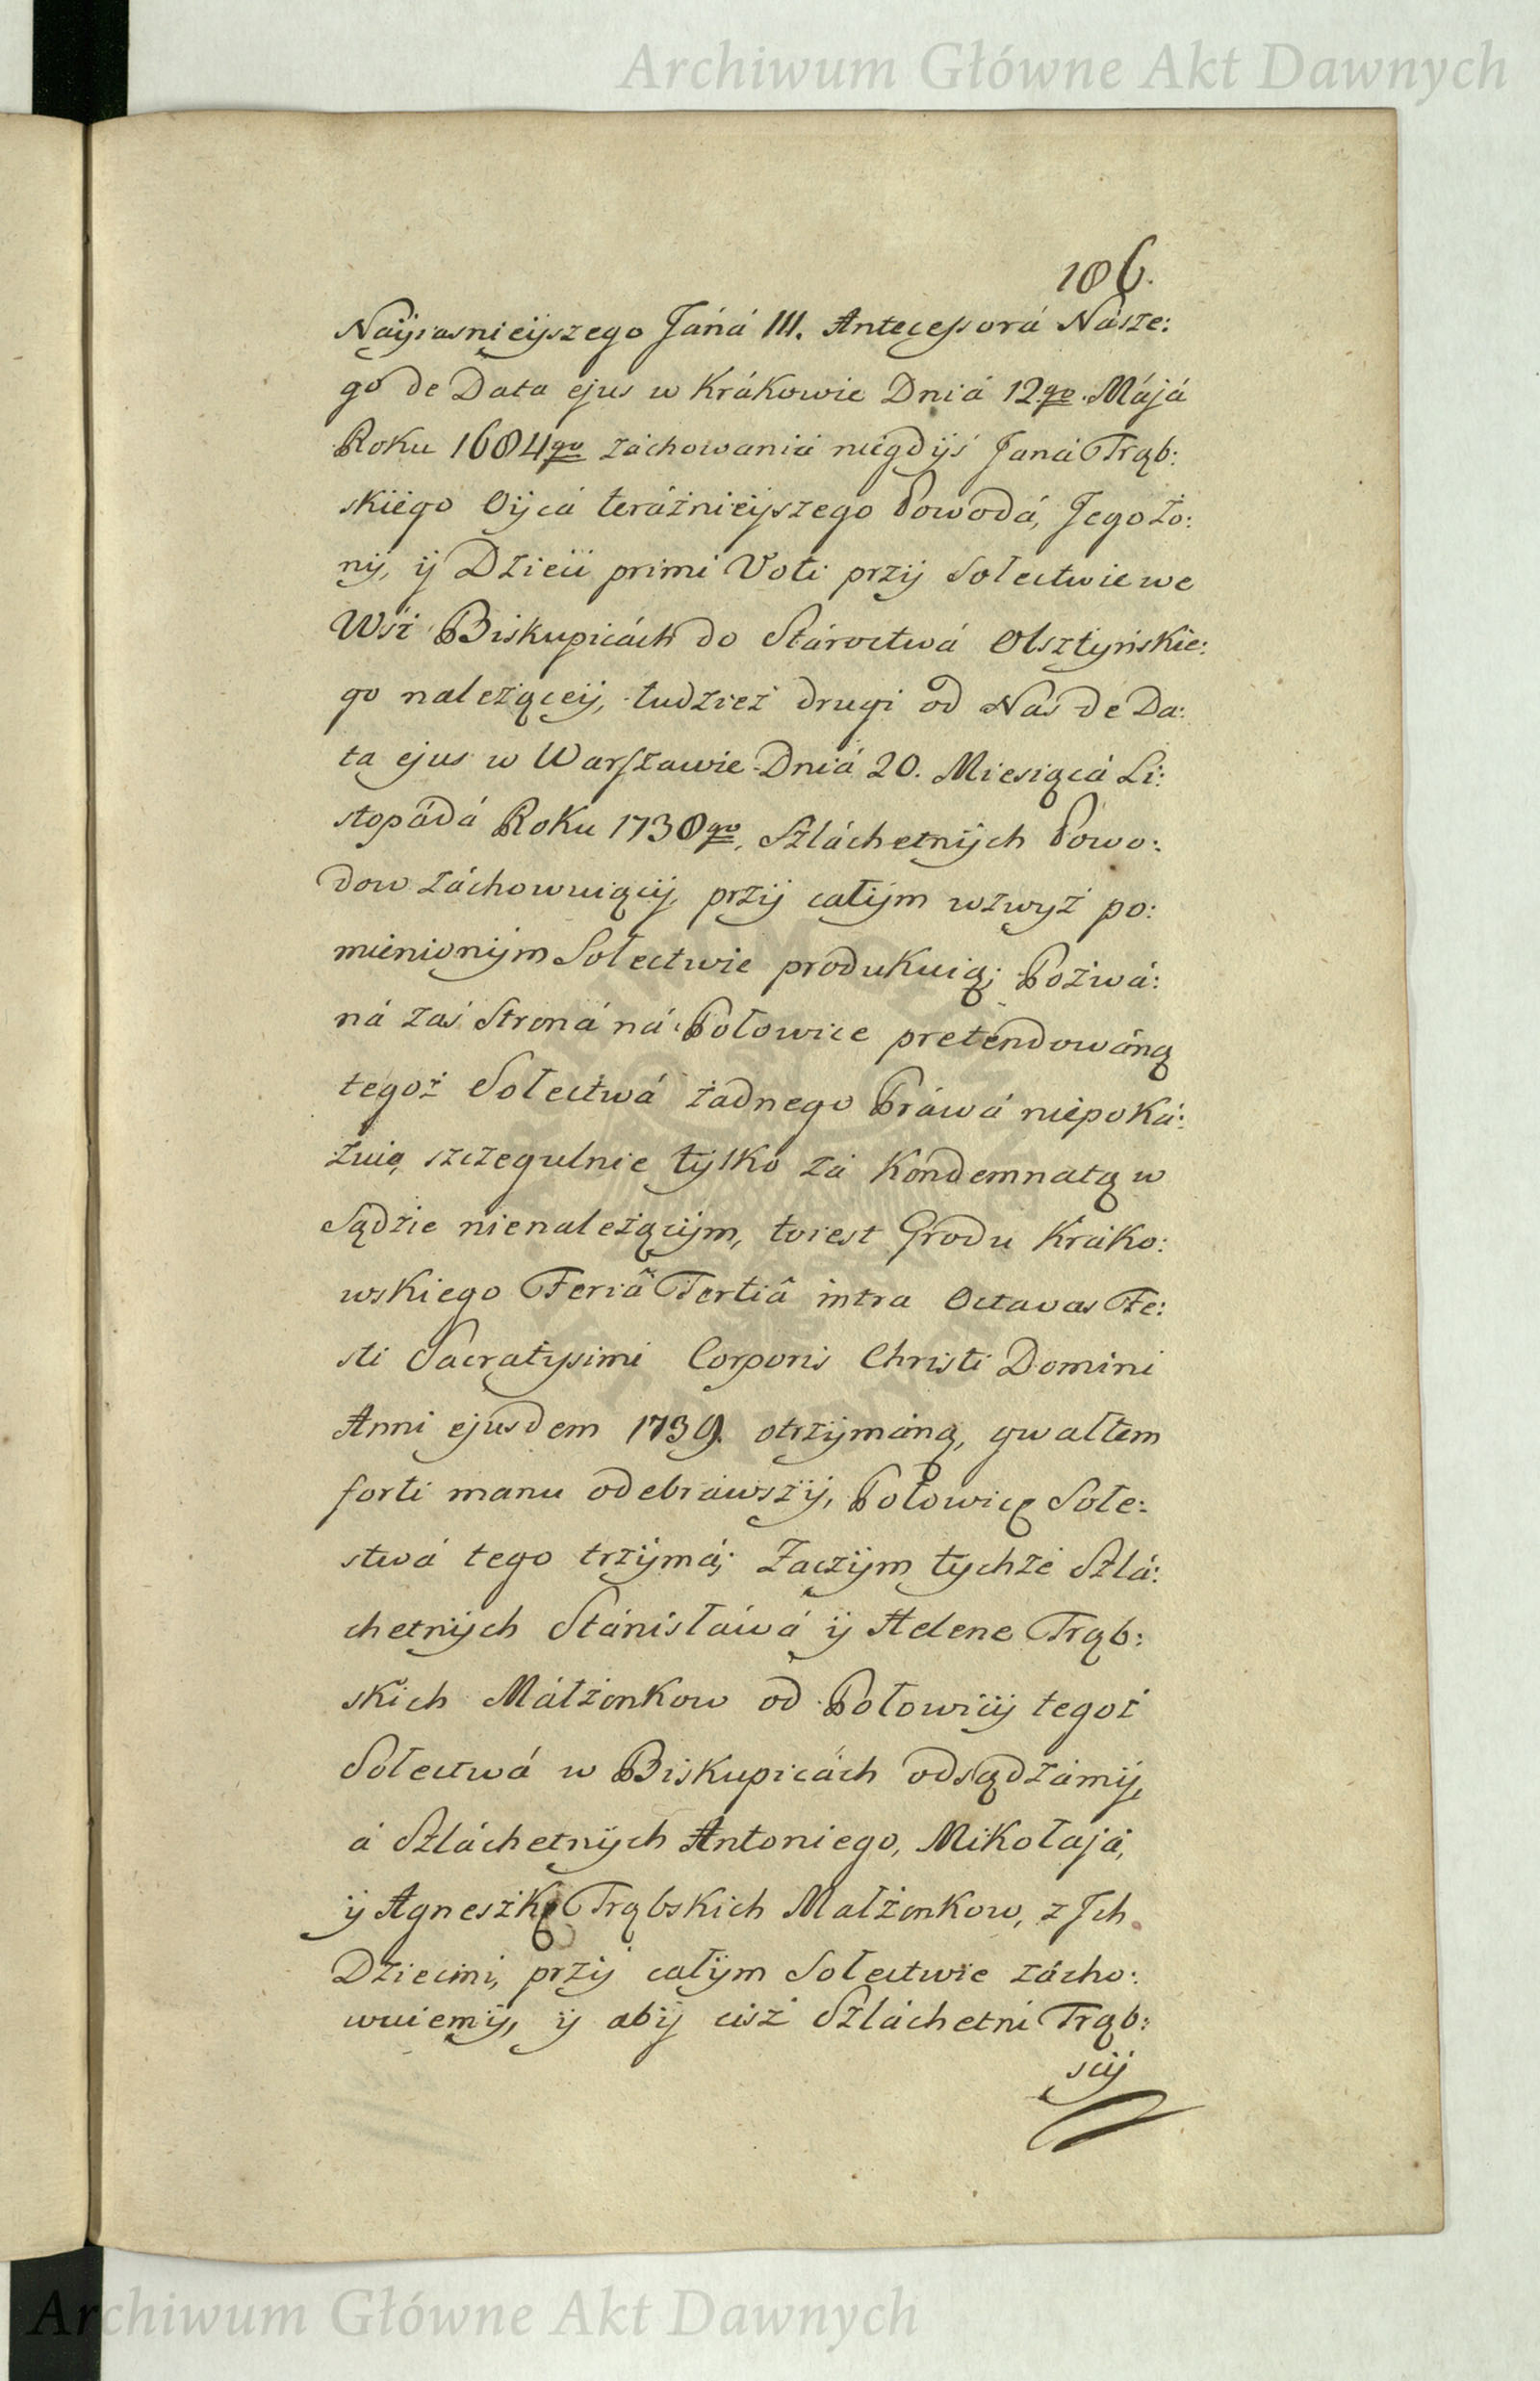 Archiwum Główne Akt Dawnych
186.
Nayiasnieyszego Jáná III. Antecessorá Násze:
go de Data ejus w Krákowie Dniá 12go. Májá
Roku 1684go záchowaniá niegdyś Janá Trąb:
skiego Oycá teráźnieyszego Powodá, Jego Żo:
ny, y Dzieci primi Voti przy Sołectwie we
Wśi Biskupicách do Stároctwá Olsztyńskie:
go należącey, tudzież drugi od Nas de Da:
ta ejus w Warszawie Dniá 20. Miesiącá Li:
stopádá Roku 1738go, Szláchetnych Powo:
dow záchowuiący, przy całym wzwyż po:
mienionym Sołectwie produkuią; Pozwá:
ná zaś Stroná ná Połowice pretendowáną
tegoż Sołectwá żadnego Práwá niepoká:
zuie, szczegulnie tylko zá Kondemnatą w
Sądzie nienależącym, toiest Grodu Kráko:
wskiego Feriâ Tertiâ intra Octavas Fe:
sti Sacratissimi Corporis Christi Domini
Anni ejusdem 1739. otrzymáną, gwałtem
forti manu odebrawszy, Połowicę Sołe:
stwá tego trzymá; Zaczym tychże Szlá:
chetnych Stánisłáwá y Helene Trąb:
skich Máłżonkow od Połowicy tegoż
Sołectwá w Biskupicách odsądzámy,
á Szláchetnych Antoniego, Mikołajá,
y Agneszkę Trąbskich Małżonkow, z Jch
Dziecmi, przy całym Sołectwie zácho:
wuiemy, y aby ciż Szláchetni Trąb:
scy
Archiwum Główne Akt Dawnych